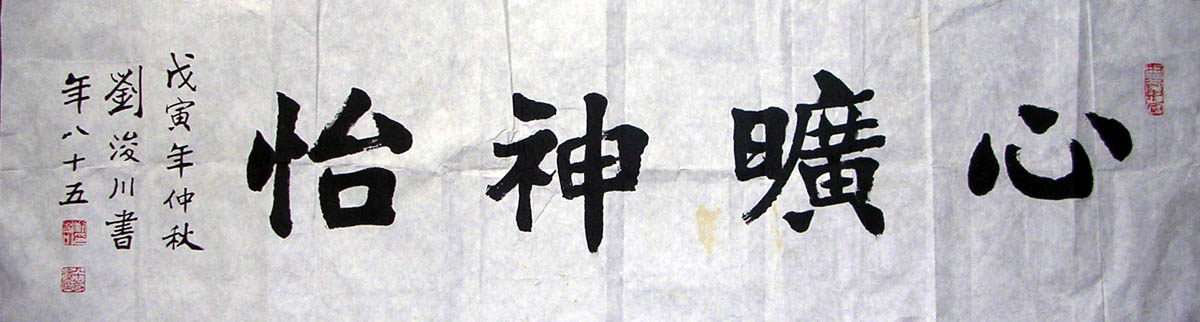 心曠神怡
戊寅年仲秋
劉浚川書
年八十五